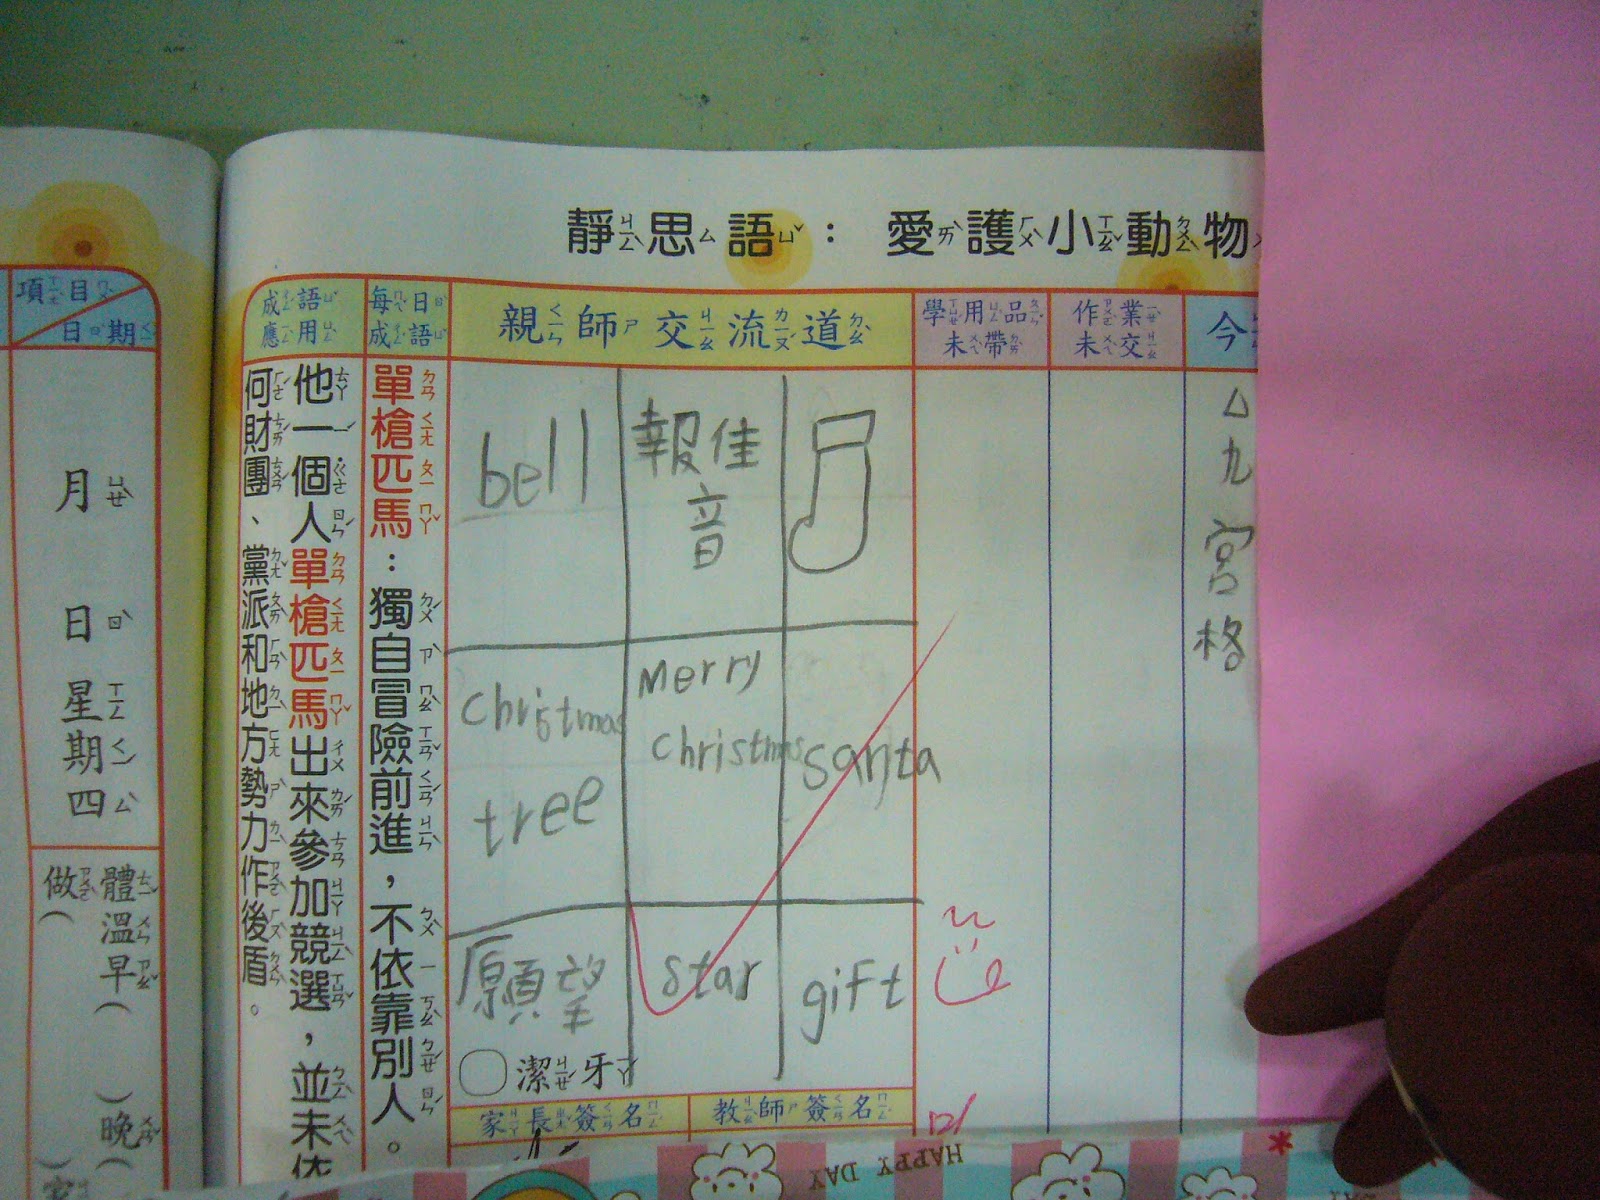 靜思語：愛護小動物
項目
日期
月
日
星期四
體溫早（　）晚（
做（
成語
應用
每日
成語
親師交流道
學用品
未帶
作業
未交
今
單槍匹馬：獨自冒險前進，不依靠別人。
他一個人單槍匹馬出來參加競選，並未依
何財團、黨派和地方勢力作後盾。
bell
報佳
音
christmas
tree
merry
christmas
santa
願望
star
gift
△九宮格
潔牙
家長簽名
教師簽名
HAPPY DAY